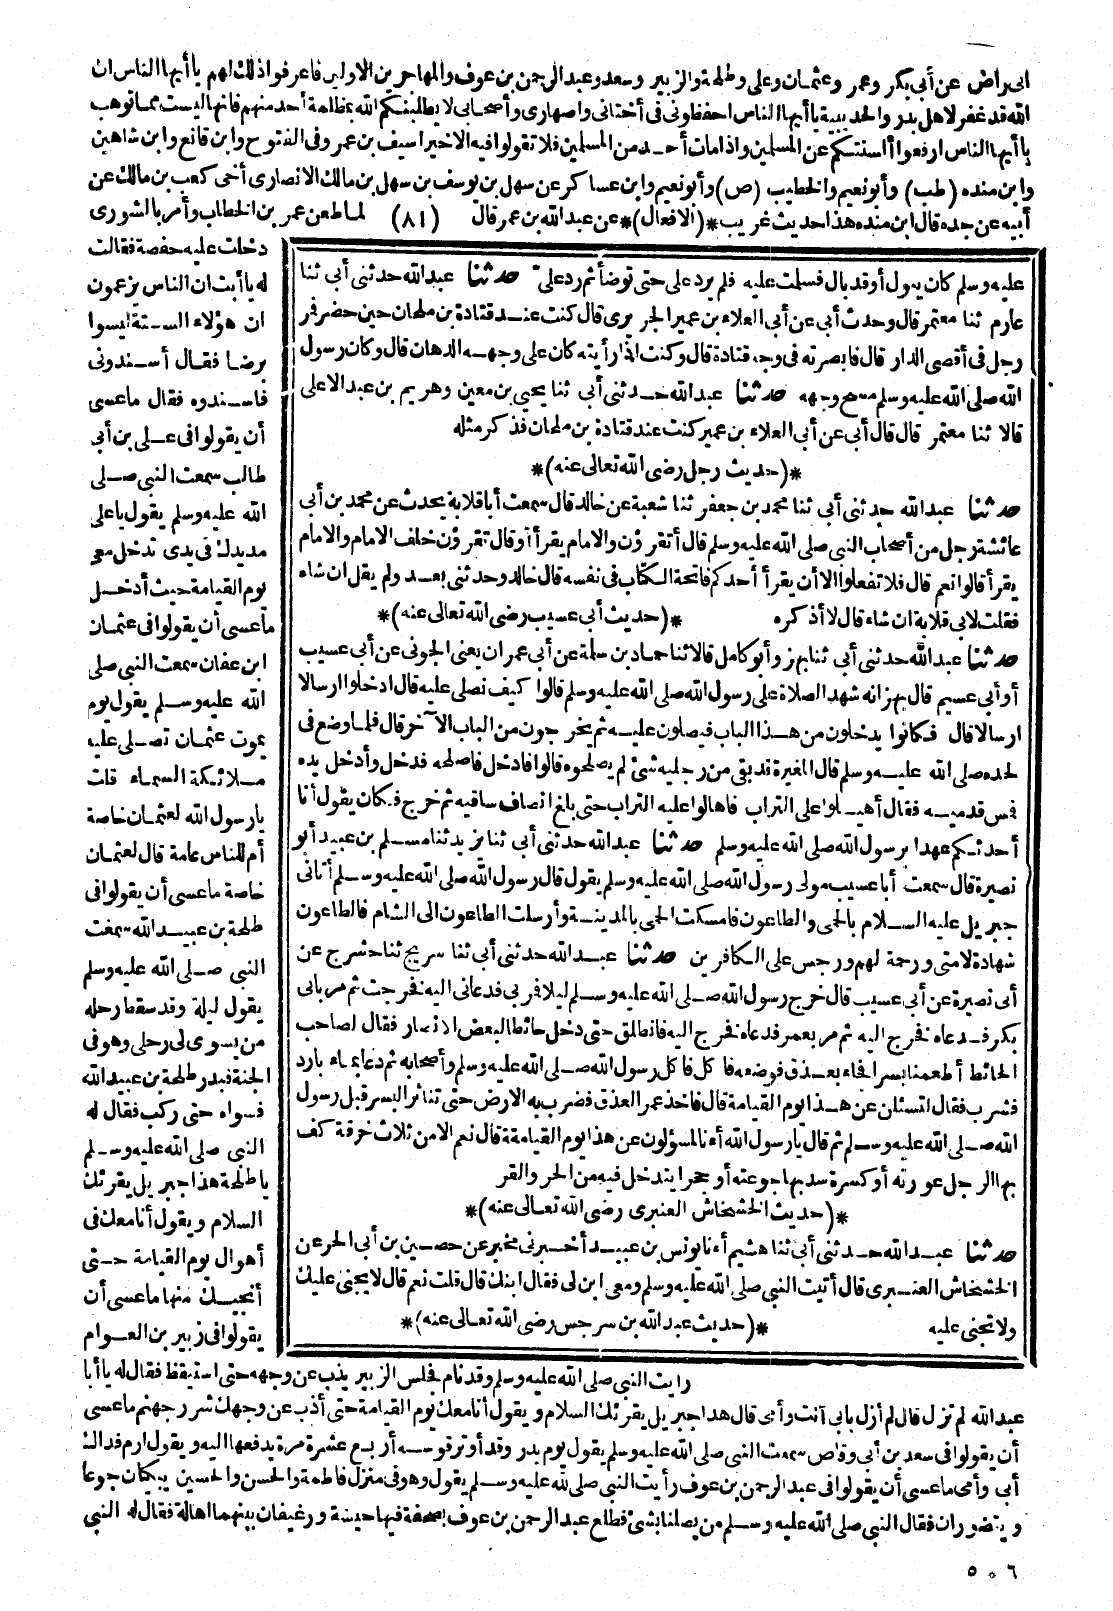 انى راض عن أبى بكر وعمر وعثمان وعلى وطلحة والزبير وسعد وعبد الرحمن بن عوف والمهاجرين الاولين فاعرفوا ذلك لهم يا أيها الناس ان
الله قد غفر لاهل بدر والحديبية يا أيها الناس احفظونى فى أختانى واصهارى وأصحابى لا يطلبنكم الله بمظلمة أحد منهم فانها ليست مما توهب
يا أيها الناس ارفعوا ألسنتكم عن المسلمين واذا مات أحد من المسلمين فلا تقولوا فيه الا خيرا سيف بن عمر وفى الفتوح وابن قانع وابن شاهين
وابن منده (طب) وأبو نعيم والخطيب (ص) وأبو نعيم وابن عساكر عن سهل بن يوسف بن سهل بن مالك الانصارى أخى كعب بن مالك عن
أبيه عن جده قال ابن منده هذا حديث غريب *(الافعال)* عن عبد الله بن عمر قال (٨١) لما طعن عمر بن الخطاب وأمر بالشورى
دخلت عليه حفصة فقالت
له يا أبت ان الناس يزعمون
ان هؤلاء الستة ليسوا
برضا فقال أسندونى
فاسندوه فقال ما عسى
أن يقولوا فى على بن أبى
طالب سمعت النبى صلى
الله عليه وسلم يقول يا على
مد يدك فى يدى تدخل معى
يوم القيامة حيث أدخل
ما عسى أن يقولوا فى عثمان
ابن عفان سمعت النبى صلى
الله عليه وسلم يقول يوم
يموت عثمان تصلى عليه
ملائكة السماء قلت
يا رسول الله لعثمان خاصة
أم للناس عامة قال لعثمان
خاصة ما عسى أن يقولوا فى
طلحة بن عبيد الله سمعت
النبى صلى الله عليه وسلم
يقول ليلة وقد سقط رحله
من يسوى لى رحلى وهو فى
الجنة فبدر طلحة بن عبيد الله
فسواه حتى ركب فقال له
النبى صلى الله عليه وسلم
يا طلحة هذا جبريل يقرئك
السلام ويقول أنا معك فى
أهوال يوم القيامة حتى
أنجيك منها ما عسى أن
يقولوا فى زبير بن العوام
عليه وسلم كان يبول أو قد بال فسلمت عليه فلم يرد على حتى توضأ ثم رد على حدثنا عبد الله حدثنى أبى ثنا
عارم ثنا معتمر قال وحدث أبى عن أبى العلاء بن عمير الجريرى قال كنت عند قتادة بن ملحان حين حضر فمر
رجل فى أقصى الدار قال فابصرته فى وجه قتادة قال وكنت اذا رأيته كان على وجهه الدهان قال وكان رسول
الله صلى الله عليه وسلم مسح وجهه حدثنا عبد الله حدثنى أبى ثنا يحيى بن معين وهريم بن عبد الاعلى
قالا ثنا معتمر قال قال أبى عن أبى العلاء بن عمير كنت عند قتادة بن ملحان فذكر مثله
*(حديث رجل رضى الله تعالى عنه)*
حدثنا عبد الله حدثنى أبى ثنا محمد بن جعفر ثنا شعبة عن خالد قال سمعت أبا قلابة يحدث عن محمد بن أبى
عائشة رجل من أصحاب النبى صلى الله عليه وسلم قال أتقرؤن والامام يقرأ أو قال تقرؤن خلف الامام والامام
يقرأ قالوا نعم قال فلا تفعلوا الا أن يقرأ أحدكم فاتحة الكتاب فى نفسه قال خالد وحدثنى بعد ولم يقل ان شاء
فقلت لابى قلابة ان شاء قال لا أذكره *(حديث أبى عسيب رضى الله تعالى عنه)*
حدثنا عبد الله حدثنى أبى ثنا بهز وأبو كامل قالا ثنا حماد بن سلمة عن أبى عمران يعنى الجونى عن أبى عسيب
أو أبى عسيم قال بهز انه شهد الصلاة على رسول الله صلى الله عليه وسلم قالوا كيف نصلى عليه قال ادخلوا ارسالا
ارسالا قال فكانوا يدخلون من هذا الباب فيصلون عليه ثم يخرجون من الباب الآخر قال فلما وضع فى
لحده صلى الله عليه وسلم قال المغيرة قد بقى من رجليه شئ لم يصلحوه قالوا فادخل فاصلحه فدخل وأدخل يده
فمس قدميه فقال أهيلوا على التراب فاهالوا عليه التراب حتى بلغ انصاف ساقيه ثم خرج فكان يقول أنا
أحدثكم عهدا برسول الله صلى الله عليه وسلم حدثنا عبد الله حدثنى أبى ثنا يزيد ثنا مسلم بن عبيد أبو
نصيرة قال سمعت أبا عسيب مولى رسول الله صلى الله عليه وسلم يقول قال رسول الله صلى الله عليه وسلم أتانى
جبريل عليه السلام بالحمى والطاعون فامسكت الحمى بالمدينة وأرسلت الطاعون الى الشام فالطاعون
شهادة لامتى ورحمة لهم ورجس على الكافرين حدثنا عبد الله حدثنى أبى ثنا سريج ثنا حشرج عن
أبى نصيرة عن أبى عسيب قال خرج رسول الله صلى الله عليه وسلم ليلا فمر بى فدعانى اليه فخرجت ثم مر بابى
بكر فدعاه فخرج اليه ثم مر بعمر فدعاه فخرج اليه فانطلق حتى دخل حائطا لبعض الانصار فقال لصاحب
الحائط أطعمنا بسرا فجاء بعذق فوضعه فاكل فاكل رسول الله صلى الله عليه وسلم وأصحابه ثم دعا بماء بارد
فشرب فقال لتسئلن عن هذا يوم القيامة قال فاخذ عمر العذق فضرب به الارض حتى تناثر البسر قبل رسول
الله صلى الله عليه وسلم ثم قال يا رسول الله أءنا لمسؤلون عن هذا يوم القيامة قال نعم الا من ثلاث خرقة كف
بها الرجل عورته أو كسرة سد بها جوعته أو حجرا يتدخل فيه من الحر والقر
*(حديث الخشخاش العنبرى رضى الله تعالى عنه)*
حدثنا عبد الله حدثنى أبى ثنا هشيم أءنا يونس بن عبيد أخبرنى مخبر عن حصين بن أبى الحر عن
الخشخاش العنبرى قال أتيت النبى صلى الله عليه وسلم ومعى ابن لى فقال ابنك قال قلت نعم قال لا يجنى عليك
ولا تجنى عليه *(حديث عبد الله بن سرجس رضى الله تعالى عنه)*
رايت النبى صلى الله عليه وسلم وقد نام فجلس الزبير يذب عن وجهه حتى استيقظ فقال له يا أبا
عبد الله لم تزل قال لم أزل بابى أنت وأمى قال هذا جبريل يقرئك السلام ويقول أنا معك يوم القيامة حتى أذب عن وجهك شرر جهنم ما عسى
أن يقولوا فى سعد بن أبى وقاص سمعت النبى صلى الله عليه وسلم يقول يوم بدر وقد أوتر قوسه أربع عشرة مرة يدفعها اليه ويقول ارم فداك
أبى وأمى ما عسى أن يقولوا فى عبد الرحمن بن عوف رأيت النبى صلى لله عليه وسلم يقول وهو فى منزل فاطمة والحسن والحسين يبكيان جوعا
ويتضوران فقال النبى صلى الله عليه وسلم من يصلنا بشئ فطلع عبد الرحمن بن عوف بصحفة فيها حيسة ورغيفان بينهما اهالة فقال له النبى
٦ * ٥